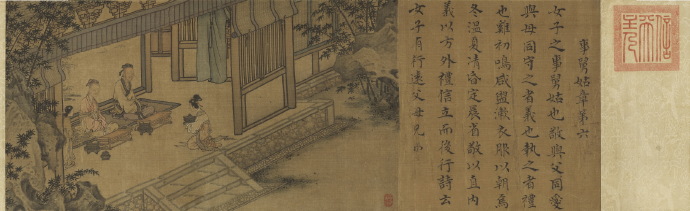 事舅姑章第六
女子之事舅姑也敬與父同愛
與母同守之者義也執之者禮
也雞初鳴咸盥漱衣服以朝焉
冬溫夏凊昏定晨省敬以直內
義以方外禮信立而後行詩云
女子有行遠父母兄弟